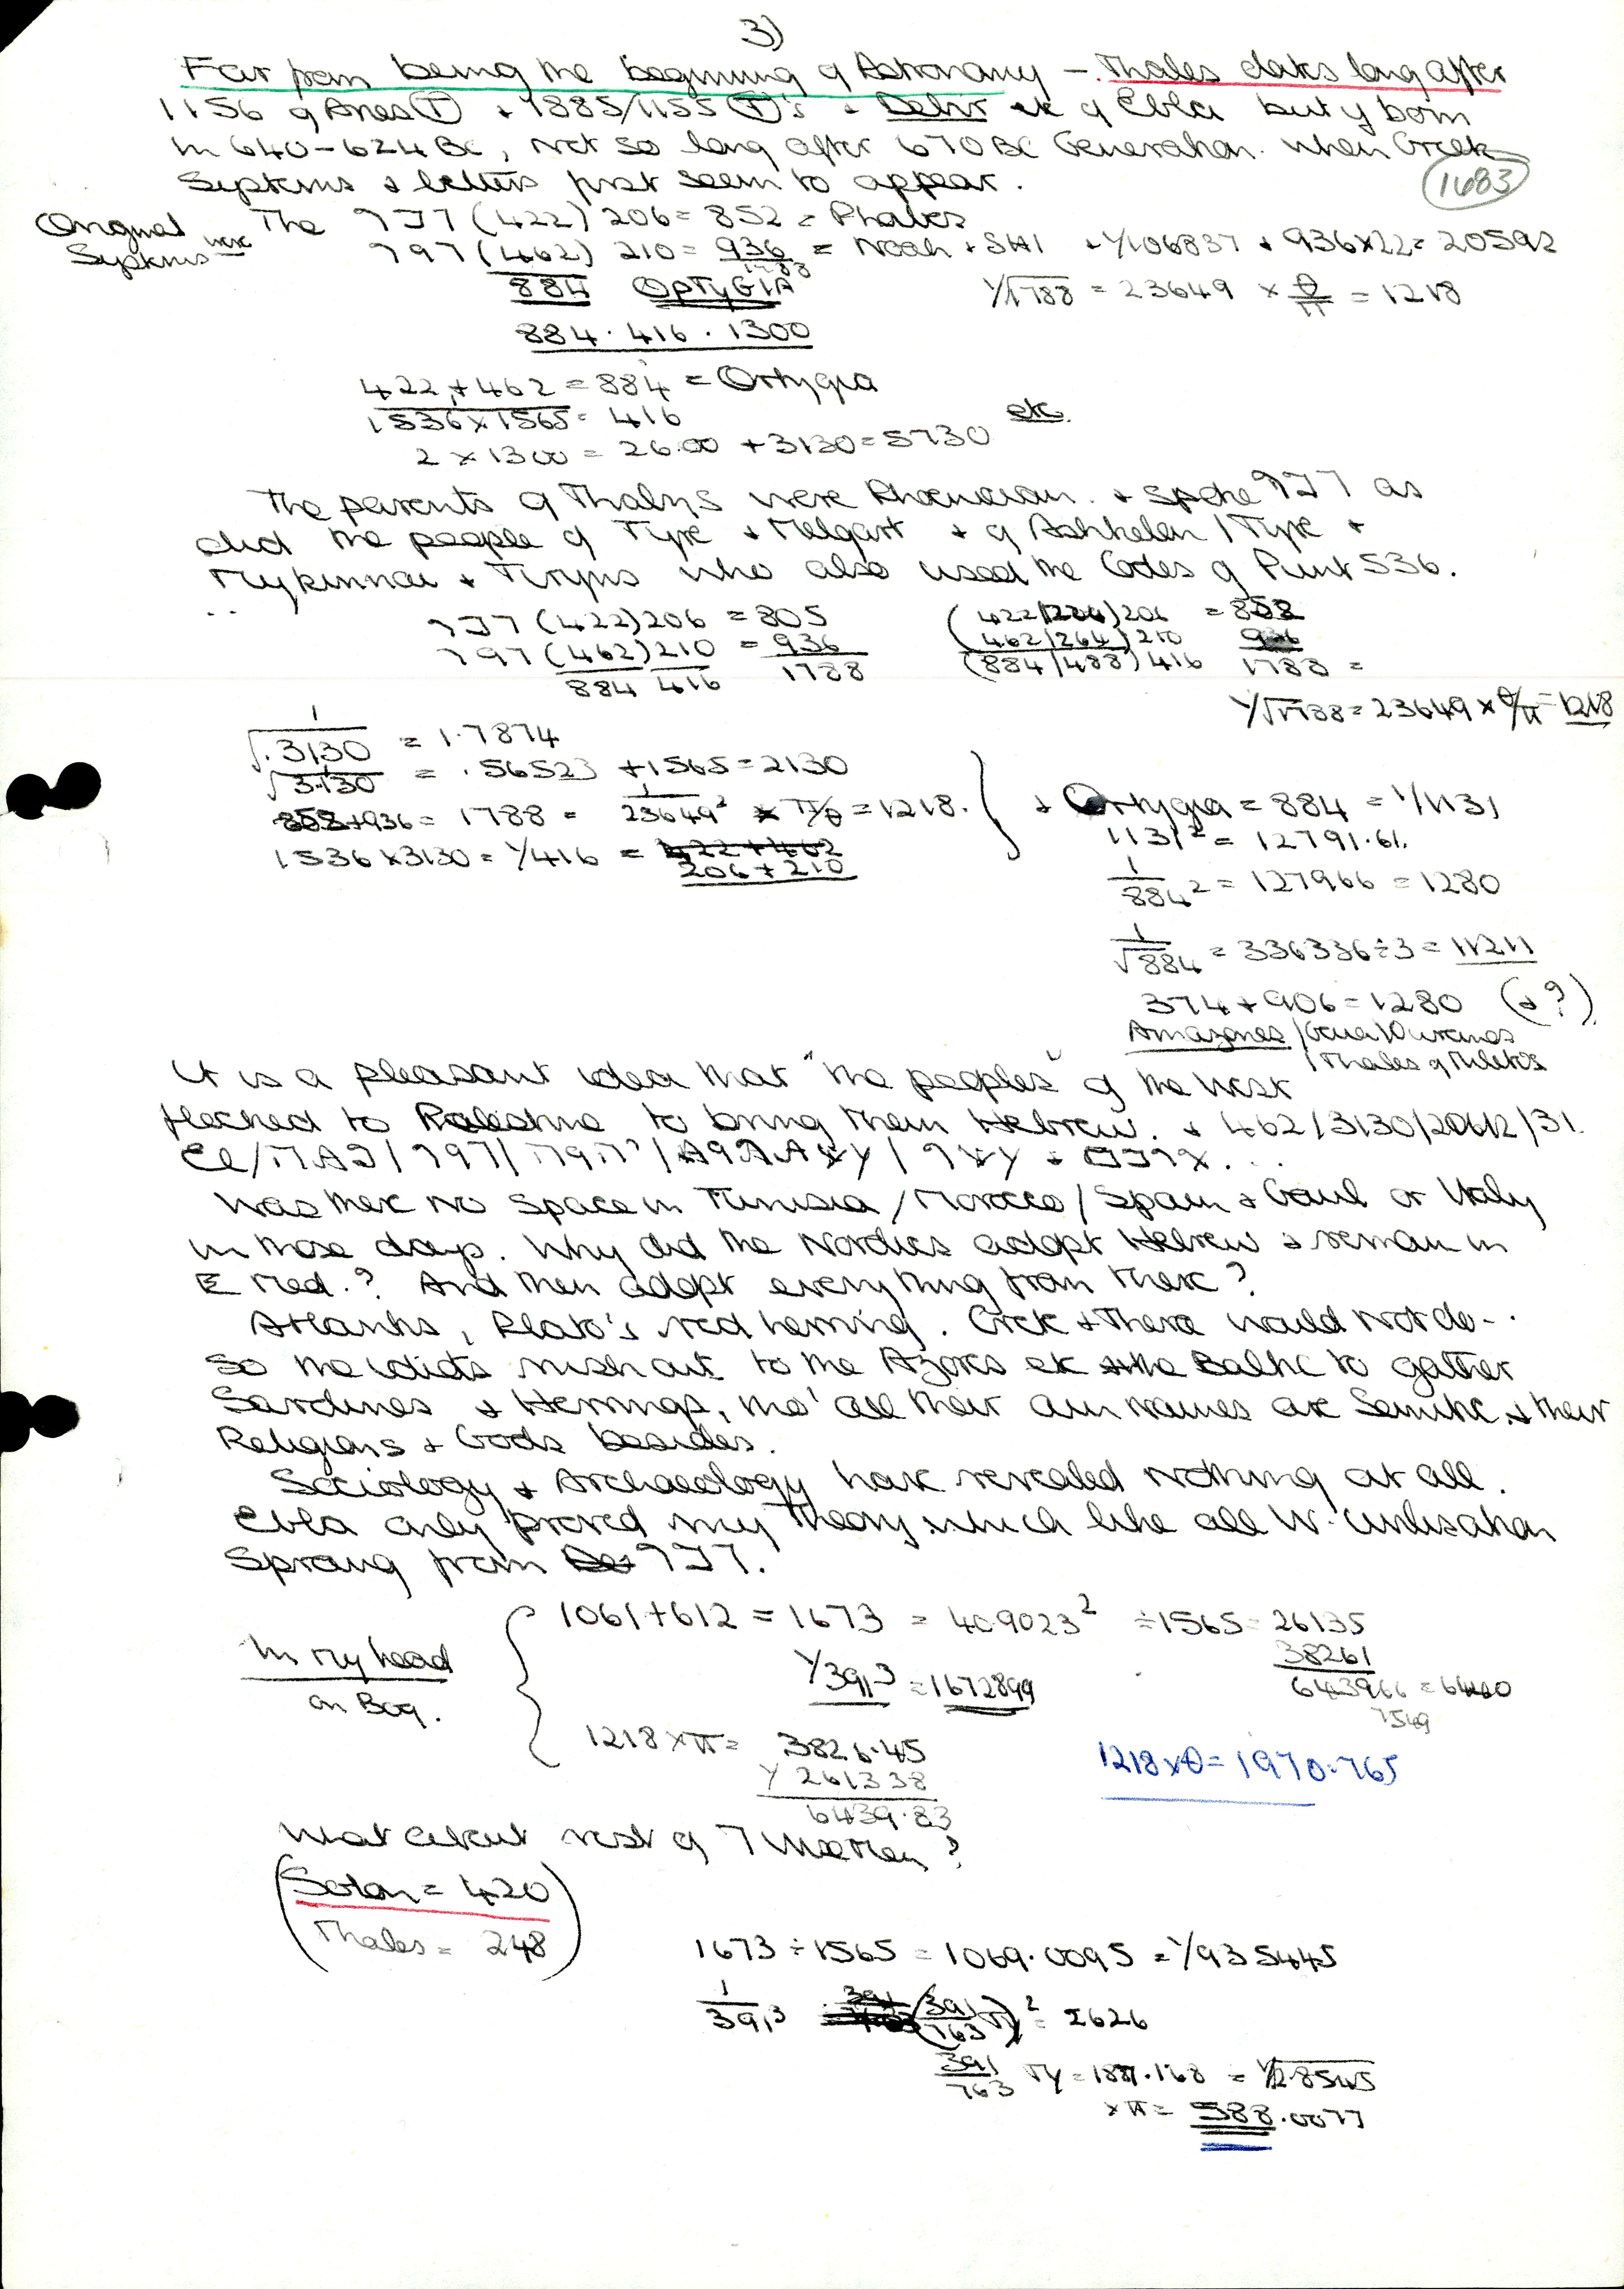 3)
Far from being the beginning of Astronomy – Thales dates long after
1156 of Ares (T) + 1885/1155 (T)'s + Debir etc of Ebla but if born
in 640–624 BC, not so long after 670 BC Generation. when Greek
Systems & letters first seem to appear.
1683
Original Systems were
The 𐤉𐤉 (422) 206 = 852 =
797 (462) 210 = 936 = Noah + SAI + 1/106837 + 936×22 = 20592
1788
884 ΟΡΤyGIA
1/√1788 = 23649 × θ/π = 1218
884 . 416 . 1300
422 + 462 = 884 = Ortygia
1536×1565 = 416
etc.
2 × 1300 = 26.00 + 3130 = 5730
The parents of Thalys were Phoenician. & spoke as
did the people of Tyre & Melqart & of Ashkelon / Tyre &
Mykinnai & Tiryns who also used the Codes of Punt 536.
(422) 206 = 805
797 (462) 210 = 936
884 416 1788
(422/224) 206 = 858
(462/264) 210 936
(884/488) 416 1788 =
1/√1788 = 23649 × θ/π = 1218
1/√.3130 = 1.7874
1/√3.130 = .56523 + 1565 = 2130
858+936 = 1788 = 1/23649² × π/θ = 1218.
1536×3130 = 1/416 = 422+462
206 + 210
+ Ortygia = 884 = 1/1131
1131² = 12791.61.
1/884² = 127966 = 1280
1/√884 = 336336÷3 = 11211
374 + 906 = 1280 (+ ?)
Amazones / Gaea/Ouranos
/ Thales of Miletos
It is a pleasant idea that "the peoples" of the West
flocked to Palestine to bring them Hebrew. & 462/3130/20612/31.
Was there no space in Tunisia / Morocco / Spain & Gaul or Italy
in those days. Why did the Nordics adopt Hebrew & remain in
E Med.? And then adopt everything from there?
Atlantis, Plato's red herring. Crete & Thera would not do..
So the idiots rush out to the Azores etc & the Baltic to gather
Sardines & Herrings, tho' all their own names are Semitic & their
Religions & Gods besides.
Sociology & Archaeology have revealed nothing at all.
Ebla only proved my Theory which like all W. Civilisation
Sprang from
In my head
on Bog.
1061 + 612 = 1673 = 40.9023² ÷1565 = 26135
38261
643966 = 6440
1549
1/391³ = 1672899
1218 × π = 3826.45
1/ 261338
6439.83
1218×θ = 1970.765
What about rest of 7 Wise Men?
(Solon = 420
Thales = 248)
1673 ÷ 1565 = 1069.0095 = 1/935445
1/391³ (391/763 )² = 2626
391/763 = 187.168 = 1/√2.8545
×π = 588.0077